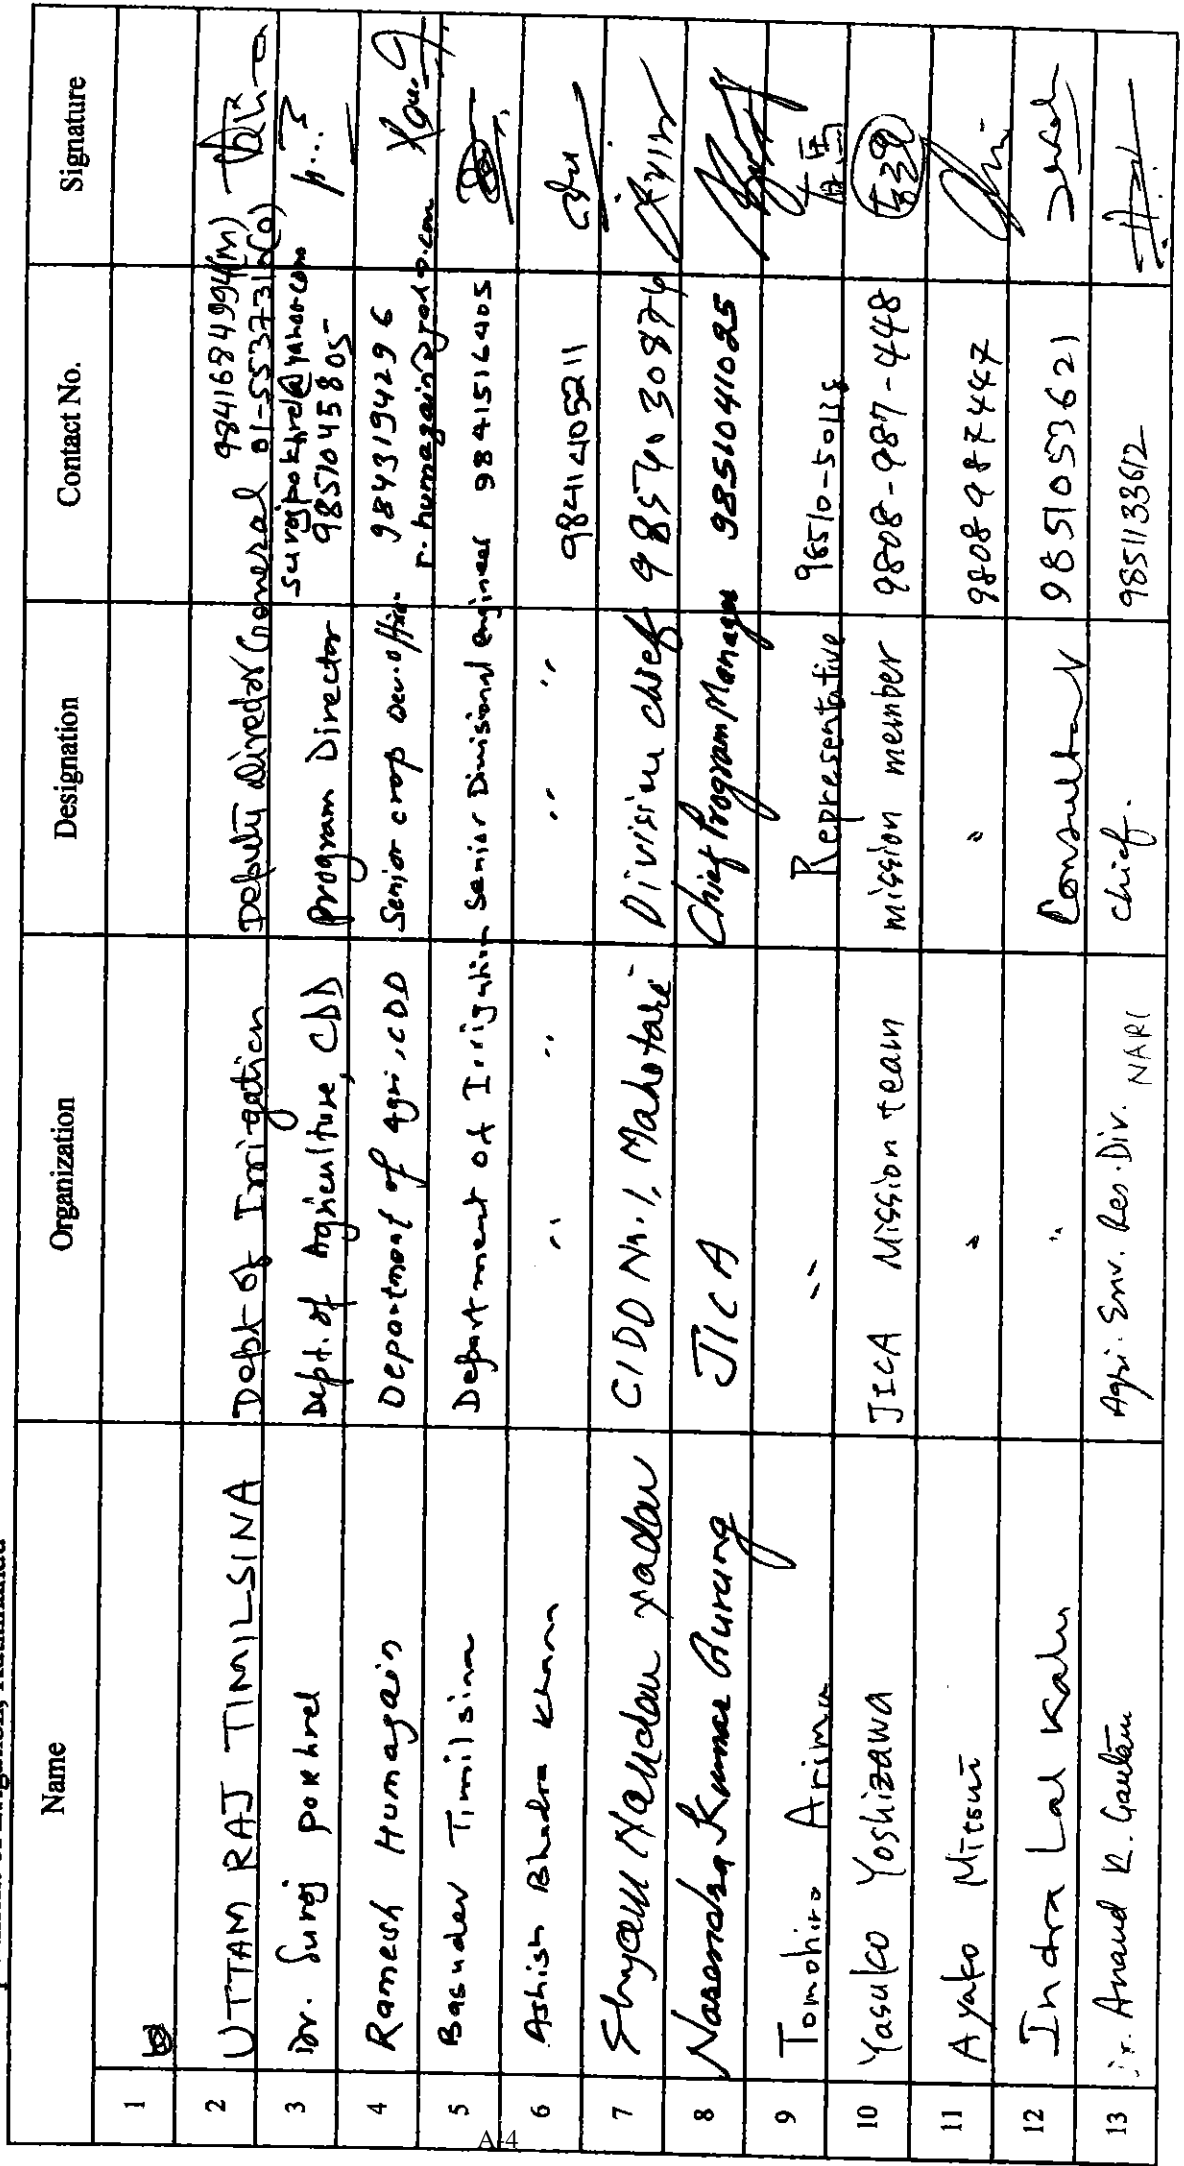 Name Organization Designation Contact No. Signature
1
2 UTTAM RAJ TIMILSINA Dept of Irrigation Deputy Director General 9841684994(M)
01-5537311(O)
3 Dr. Suraj pokhrel Dept. of Agriculture, CDD Program Director surajpokhrel@yahoo.com
9851045805
4 Ramesh Humagain Department of Agri, CDD Senior crop Dev. officer 9843194296
5 Basudev Timilsina Department of Irrigation Senior Divisional engineer 9841516405
6 Ashish Bhadra Khanal " " " 9841405211
7 Shyam Nandan yadav CIDD No. 1, Mahotari Division chief
8 Narendra Kumar Gurung JICA Chief Program Manager 9851041025
9 Tomohiro Arima " Representative 有馬
10 Yasuko Yoshizawa JICA Mission Team mission member 9808-987-448
11 Ayako Mitsui " " 9808987447
12 Indra Lal Kalu " Consultant 9851053621
13 Anand R. Gautam Agri. Env. Res. Div. NARC chief. 9851133612
A-4